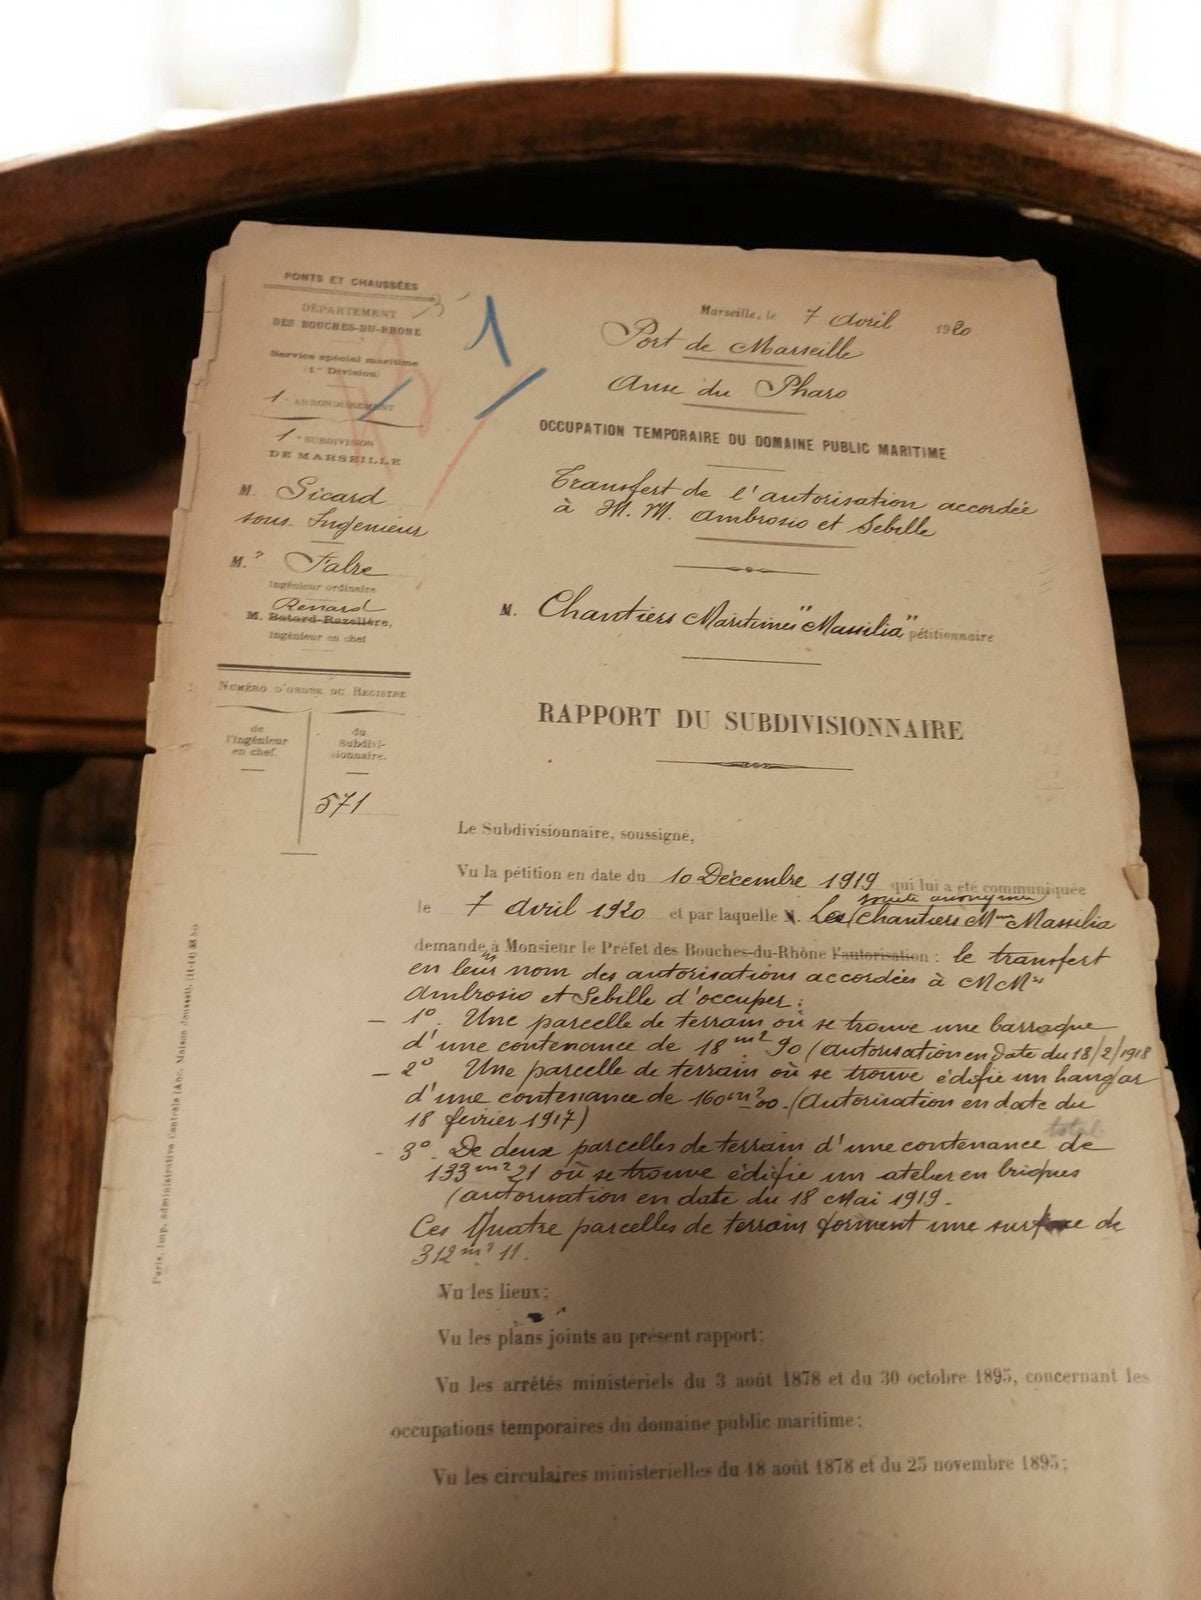 PONTS ET CHAUSSÉES
DÉPARTEMENT
DES BOUCHES-DU-RHONE
Service spécial maritime
(1re Division)
1er ARRONDISSEMENT
1e SUBDIVISION
DE MARSEILLE
M. Sicard
sous-Ingénieur
M. Fabre
Ingénieur ordinaire
Renard
M. Batard-Razelière,
Ingénieur en chef
NUMÉRO D'ORDRE DU REGISTRE
de l'Ingénieur en chef.
du Subdivi-sionnaire.
571
Marseille, le 7 Avril 1920
Port de Marseille
Anse du Pharo
OCCUPATION TEMPORAIRE DU DOMAINE PUBLIC MARITIME
Transfert de l'autorisation accordée
à M. M. Ambrosio et Sebille
M. Chantiers Maritimes "Massilia" pétitionnaire
RAPPORT DU SUBDIVISIONNAIRE
Le Subdivisionnaire, soussigné,
Vu la pétition en date du 10 Décembre 1919 qui lui a été communiquée
société anonyme
le 7 Avril 1920 et par laquelle M. Les Chantiers Mmes Massilia
demande à Monsieur le Préfet des Bouches-du-Rhône l'autorisation : le transfert
en leur nom des autorisations accordées à MM
Ambrosio et Sebille d'occuper :
– 1º. Une parcelle de terrain où se trouve une barraque
d'une contenance de 18 m² 90 (Autorisation en date du 18/2/1918
– 2º Une parcelle de terrain où se trouve édifié un hangar
d'une contenance de 160 m² 00. (Autorisation en date du
18 février 1917)
totale
- 3º. De deux parcelles de terrain d'une contenance de
133 m² 21 où se trouve édifié un atelier en briques
(autorisation en date du 18 Mai 1919.
Ces Quatre parcelles de terrain forment une surface de
312 m² 11.
Vu les lieux;
Vu les plans joints au présent rapport;
Vu les arrêtés ministériels du 3 août 1878 et du 30 octobre 1895, concernant les
occupations temporaires du domaine public maritime;
Vu les circulaires ministérielles du 18 août 1878 et du 25 novembre 1895;
Paris, Imp. administrative Centrale (Anc. Maison Jousset).